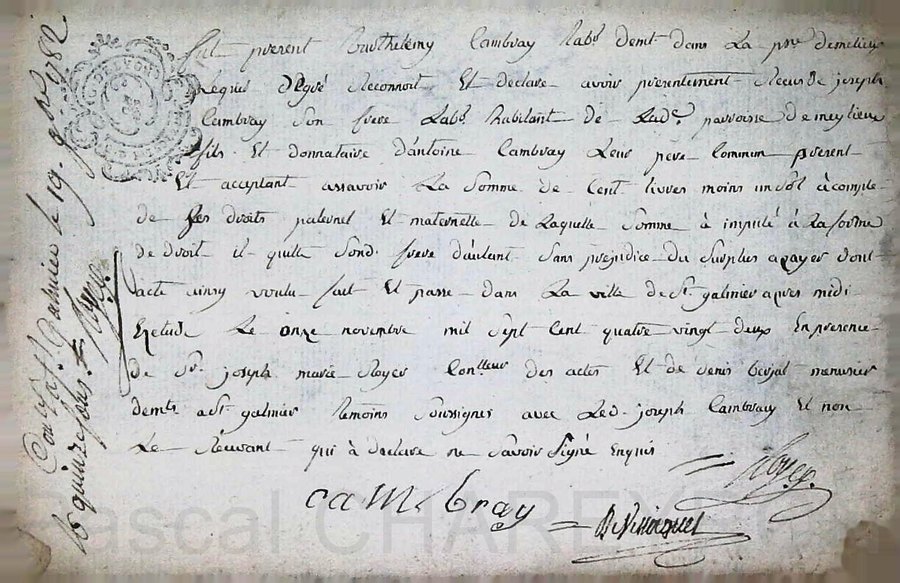 fut présent Barthelemy Cambray Labr. demt. dans La psse demelieu
Lequel degré Reconnoit Et declare avoir presentement Receu de joseph
Cambray Son frere Labr. habitant de Lade. parroisse demeylieu
fils Et donnataire d'antoine Cambray Leur pere Commun present
Et acceptant assavoir La Somme de Cent livres moins un Sol àcompte
de Ses droits paternel Et maternelle de Laquelle Somme à imputé à La forme
de droit il quitte Sond. frere d'autant Sans prejudice du Surplus apayer dont
acte ainsy voulu fait Et passé dans La ville de St. galmier apres midi
Etude Le onze novembre mil Sept Cent quatre vingt deux En presence
de Sr. joseph marie Royer Contlleur des actes Et de denis menusier
demts. a St. galmier temoins Soussignes avec Led. joseph Cambray Et non
Le Recevant qui à declaré ne Savoir Signé Enquis
Royer
cambray
Conllé à St. Galmier le 19. 9bre 1782
Rç quinze sols. Royer
Pascal CHAR